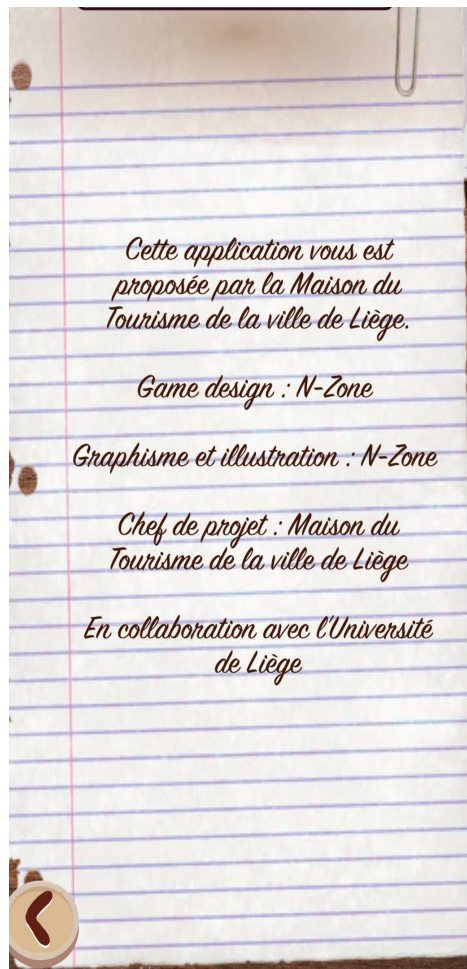 Cette application vous est
proposée par la Maison du
Tourisme de la ville de Liège.
Game design : N-Zone
Graphisme et illustration : N-Zone
Chef de projet : Maison du
Tourisme de la ville de Liège
En collaboration avec l'Université
de Liège